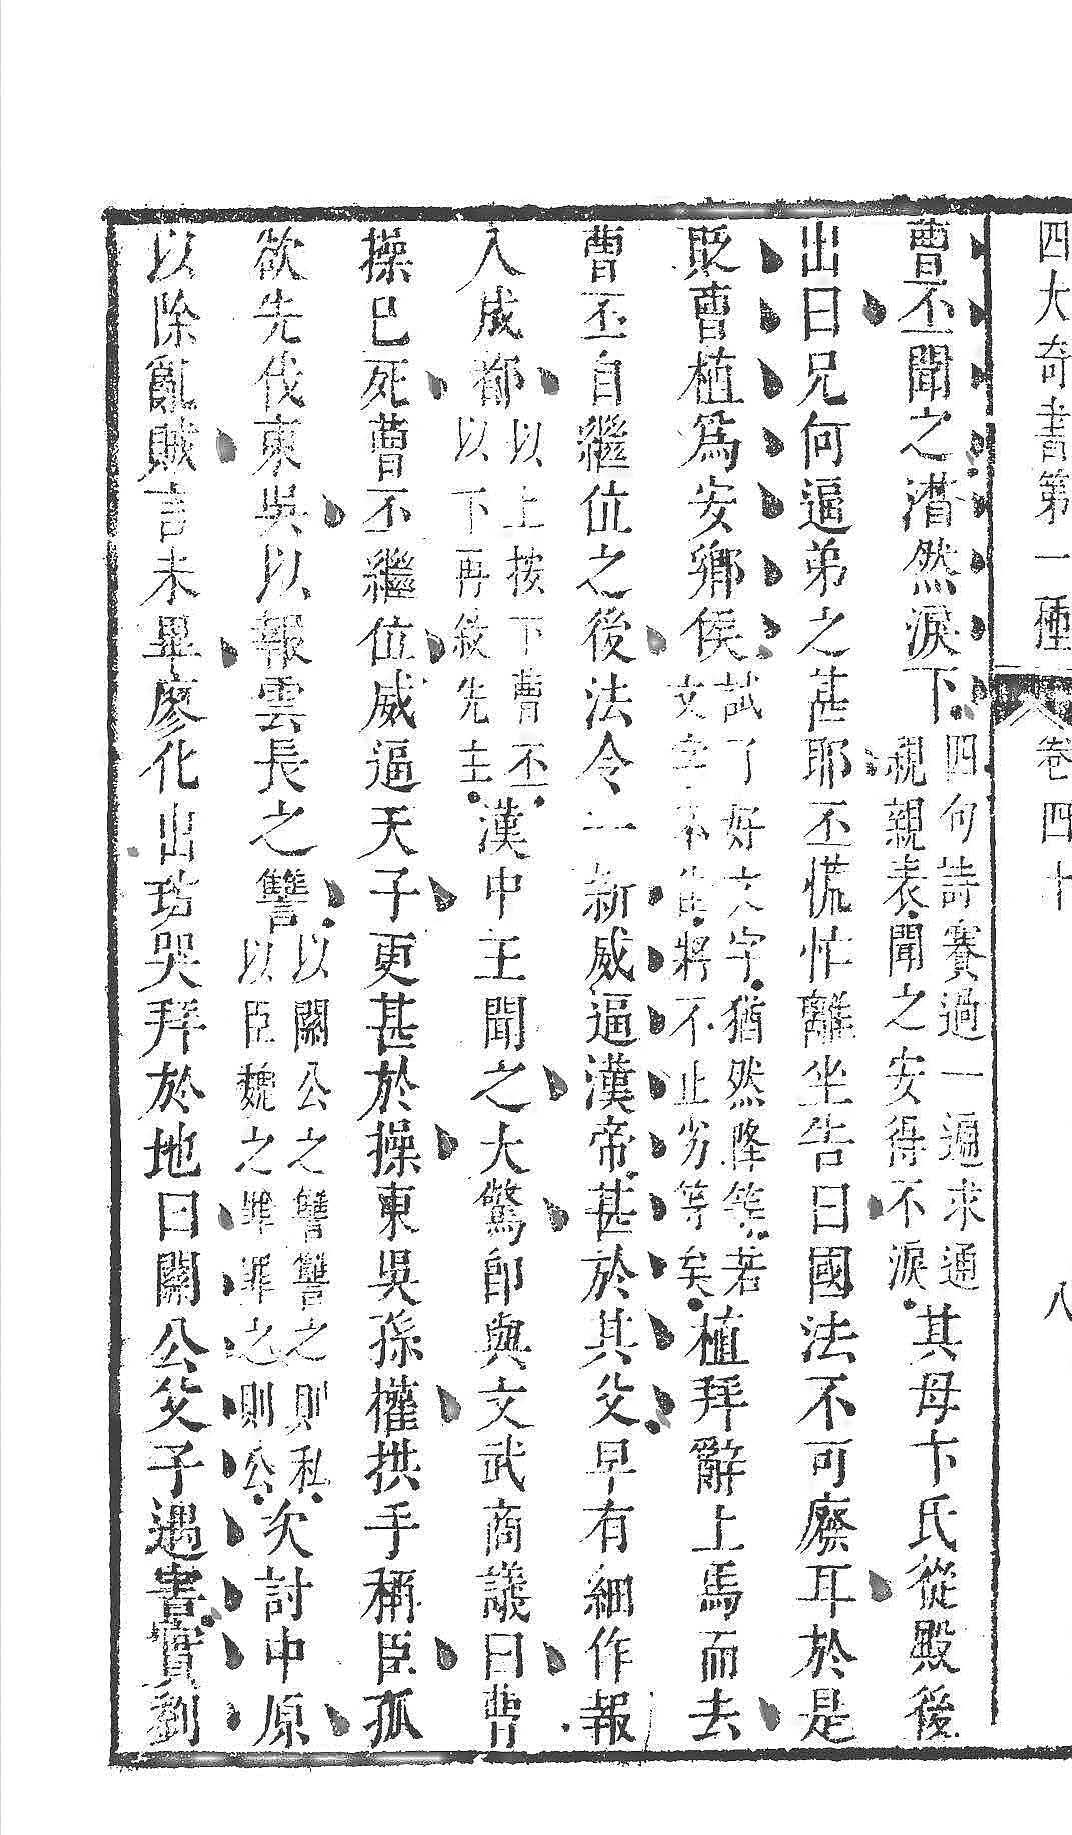 四大奇書第一種 卷四十 八
曹丕聞之潸然淚下四句詩賽過一遍求通親親表聞之安得不淚其母卞氏從殿後
出曰兄何逼弟之甚耶丕慌忙離坐告曰國法不可廢耳於是
貶曹植爲安鄉侯試了好文字猶然降等若文字不佳將不止劣等矣植拜辭上馬而去
曹丕自繼位之後法令一新威逼漢帝甚於其父早有細作報
入成都以上按下曹丕以下再敘先主漢中王聞之大驚卽與文武商議曰曹
操已死曹丕繼位威逼天子更甚於操東吳孫權拱手稱臣孤
欲先伐東吳以報雲長之讐以關公之讐讐之則私以臣魏之罪罪之則公次討中原
以除亂賊言未畢廖化出班哭拜於地曰關公父子遇害實劉